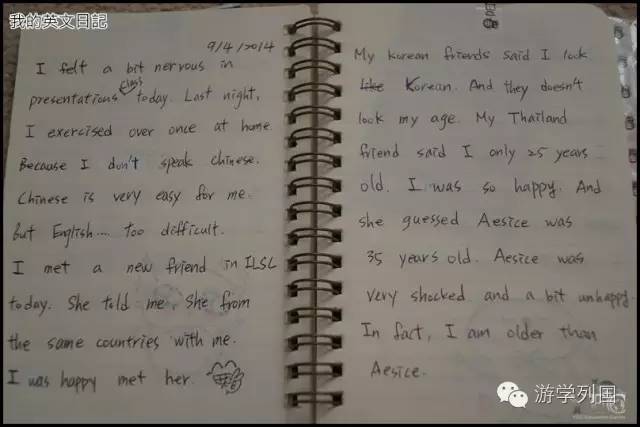 我的英文日記
9/4/2014
I felt a bit nervous in
presentations class today. Last night,
I exercised over once at home.
Because I don't speak chinese.
Chinese is very easy for me.
But English.... too difficult.
I met a new friend in ILSC
today. She told me, she from
the same countries with me.
I was happy met her.
My korean friends said I look
like Korean. And they doesn't
look my age. My Thailand
friend said I only 25 years
old. I was so happy. And
she guessed Aesice was
35 years old. Aesice was
very shocked and a bit unhappy
In fact, I am older than
Aesice.
游学列国